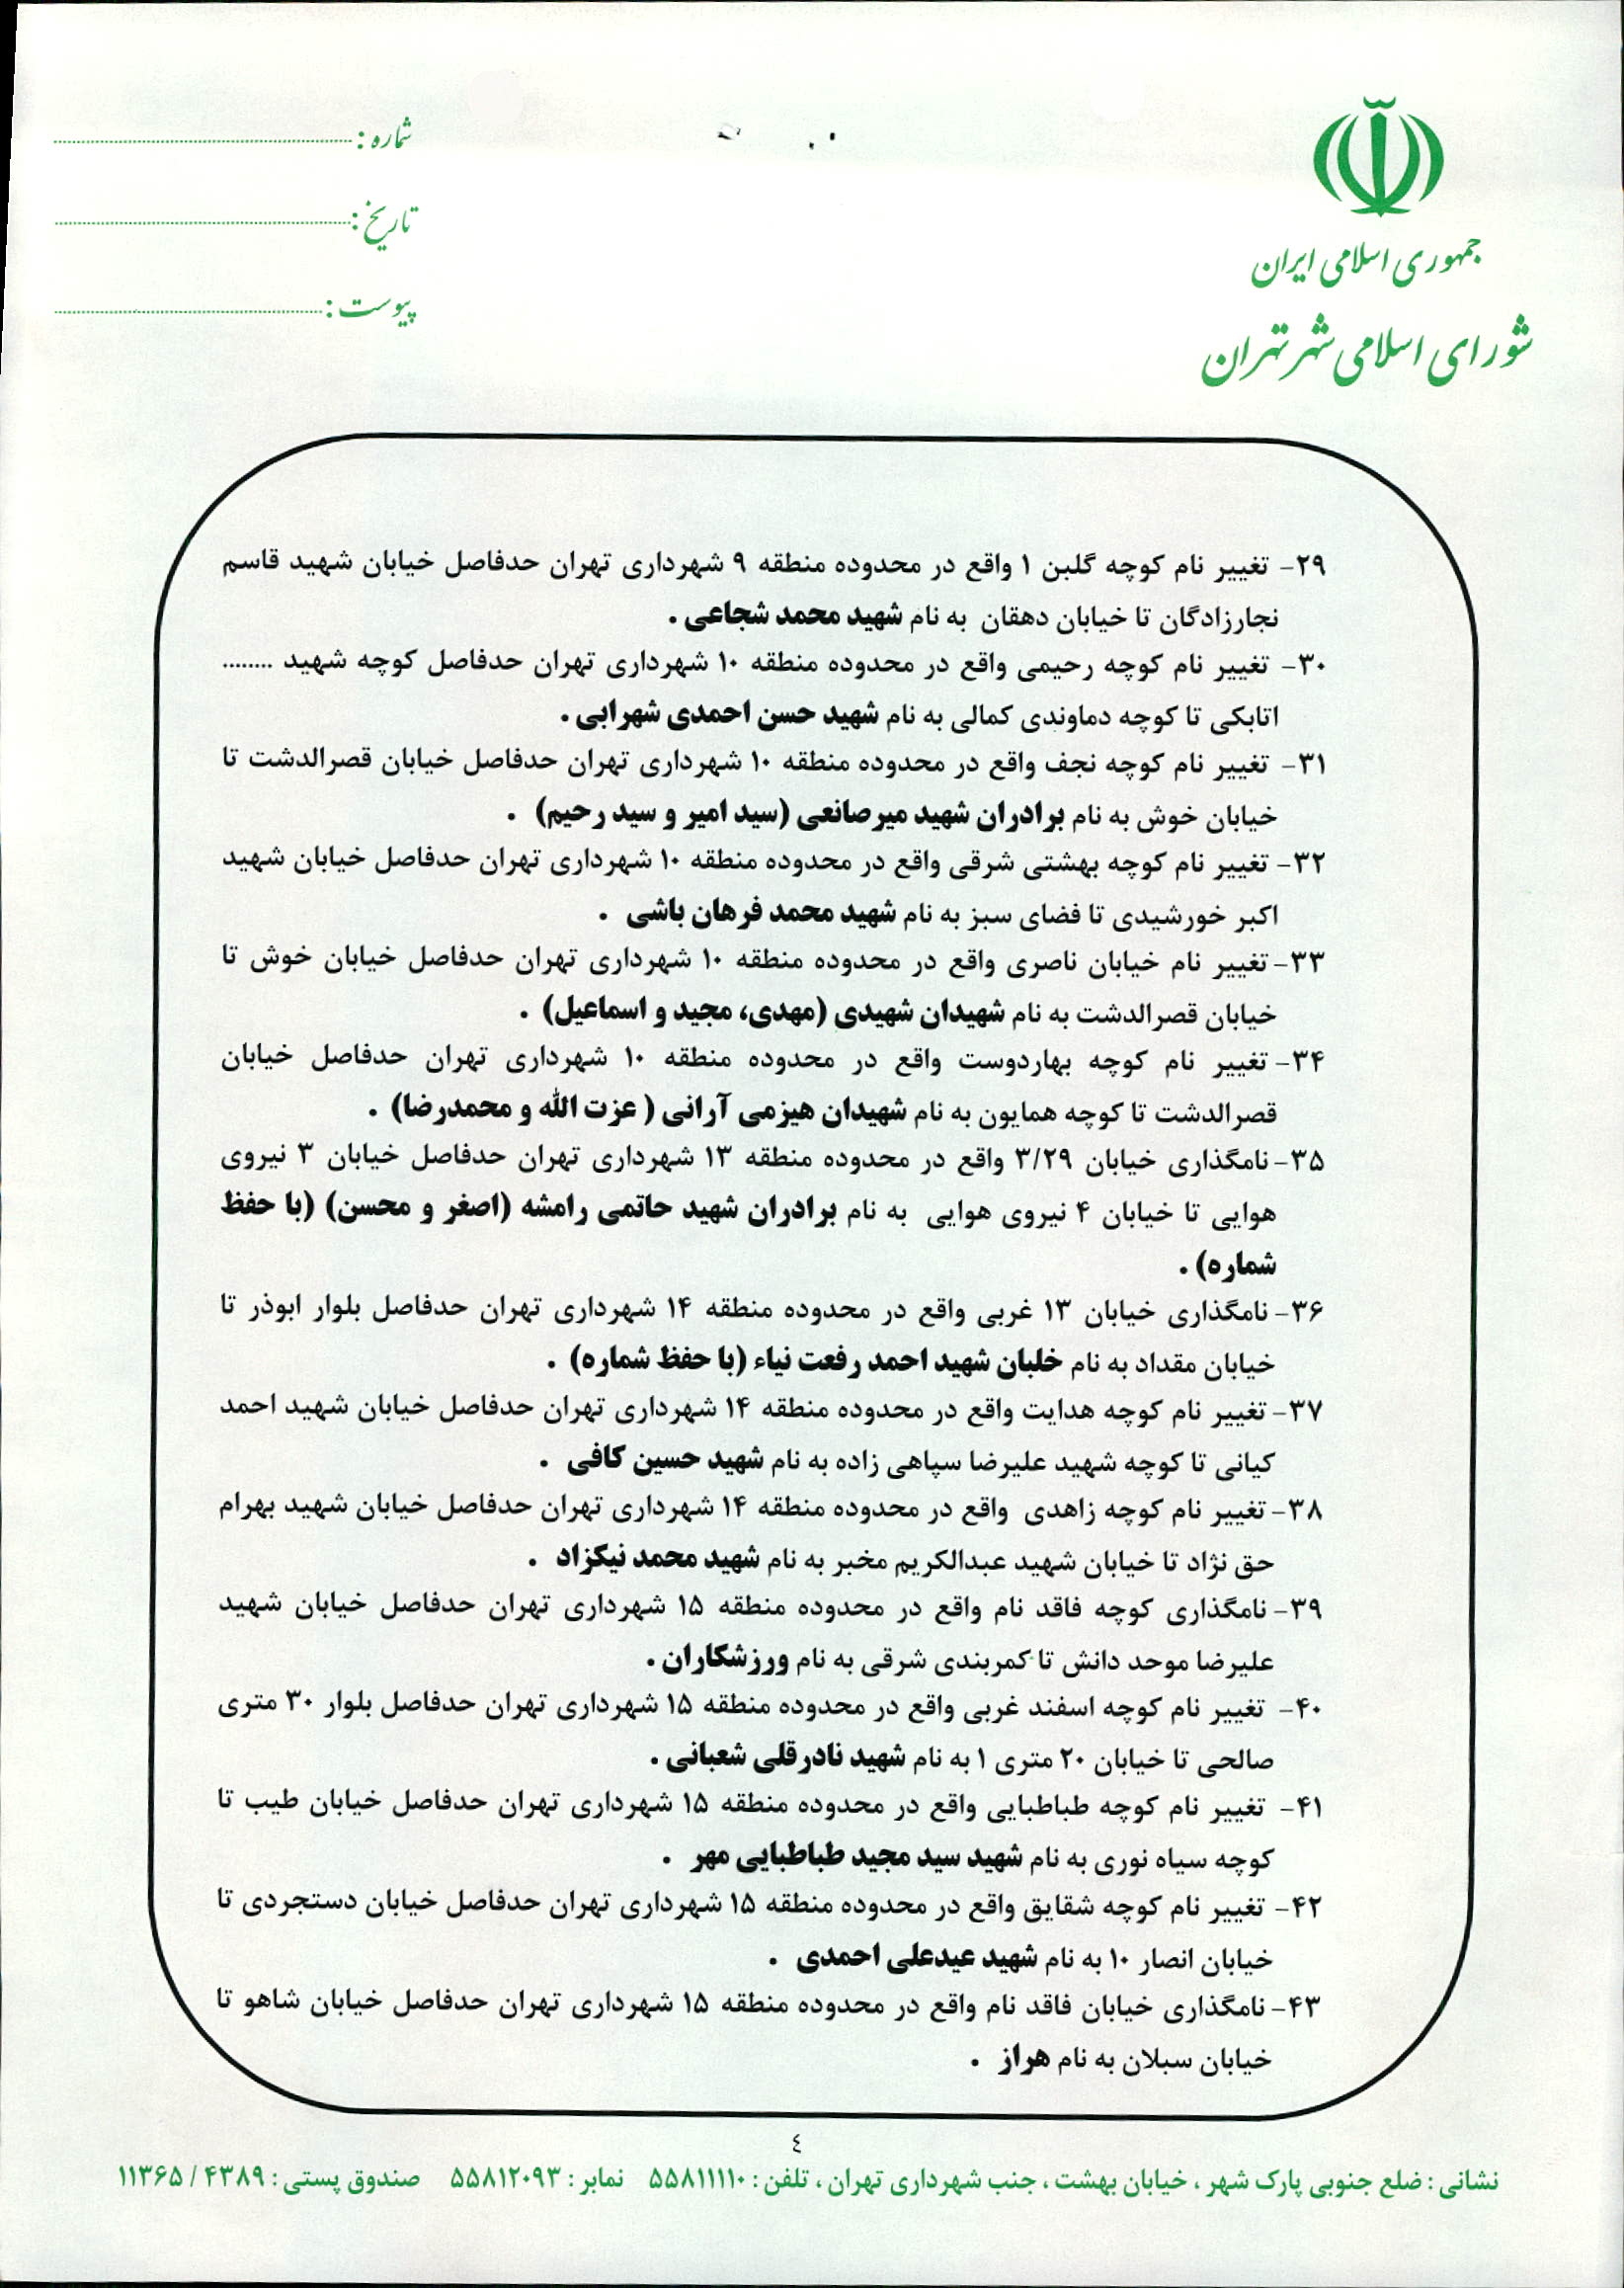 جمهوری اسلامی ایران
شورای اسلامی شهر تهران
شماره :
تاریخ :
پیوست :
۲۹- تغییر نام کوچه گلبن ۱ واقع در محدوده منطقه ۹ شهرداری تهران حدفاصل خیابان شهید قاسم
نجارزادگان تا خیابان دهقان به نام شهید محمد شجاعی .
۳۰- تغییر نام کوچه رحیمی واقع در محدوده منطقه ۱۰ شهرداری تهران حدفاصل کوچه شهید ........
اتابکی تا کوچه دماوندی کمالی به نام شهید حسن احمدی شهرابی .
۳۱- تغییر نام کوچه نجف واقع در محدوده منطقه ۱۰ شهرداری تهران حدفاصل خیابان قصرالدشت تا
خیابان خوش به نام برادران شهید میرصانعی (سید امیر و سید رحیم) .
۳۲- تغییر نام کوچه بهشتی شرقی واقع در محدوده منطقه ۱۰ شهرداری تهران حدفاصل خیابان شهید
اکبر خورشیدی تا فضای سبز به نام شهید محمد فرهان باشی .
۳۳- تغییر نام خیابان ناصری واقع در محدوده منطقه ۱۰ شهرداری تهران حدفاصل خیابان خوش تا
خیابان قصرالدشت به نام شهیدان شهیدی (مهدی، مجید و اسماعیل) .
۳۴- تغییر نام کوچه بهاردوست واقع در محدوده منطقه ۱۰ شهرداری تهران حدفاصل خیابان
قصرالدشت تا کوچه همایون به نام شهیدان هیزمی آرانی ( عزت الله و محمدرضا) .
۳۵- نامگذاری خیابان ۳/۲۹ واقع در محدوده منطقه ۱۳ شهرداری تهران حدفاصل خیابان ۳ نیروی
هوایی تا خیابان ۴ نیروی هوایی به نام برادران شهید حاتمی رامشه (اصغر و محسن) (با حفظ
شماره) .
۳۶- نامگذاری خیابان ۱۳ غربی واقع در محدوده منطقه ۱۴ شهرداری تهران حدفاصل بلوار ابوذر تا
خیابان مقداد به نام خلبان شهید احمد رفعت نیاء (با حفظ شماره) .
۳۷- تغییر نام کوچه هدایت واقع در محدوده منطقه ۱۴ شهرداری تهران حدفاصل خیابان شهید احمد
کیانی تا کوچه شهید علیرضا سپاهی زاده به نام شهید حسین کافی .
۳۸- تغییر نام کوچه زاهدی واقع در محدوده منطقه ۱۴ شهرداری تهران حدفاصل خیابان شهید بهرام
حق نژاد تا خیابان شهید عبدالکریم مخبر به نام شهید محمد نیکزاد .
۳۹- نامگذاری کوچه فاقد نام واقع در محدوده منطقه ۱۵ شهرداری تهران حدفاصل خیابان شهید
علیرضا موحد دانش تا کمربندی شرقی به نام ورزشکاران .
۴۰- تغییر نام کوچه اسفند غربی واقع در محدوده منطقه ۱۵ شهرداری تهران حدفاصل بلوار ۳۰ متری
صالحی تا خیابان ۲۰ متری ۱ به نام شهید نادرقلی شعبانی .
۴۱- تغییر نام کوچه طباطبایی واقع در محدوده منطقه ۱۵ شهرداری تهران حدفاصل خیابان طیب تا
کوچه سیاه نوری به نام شهید سید مجید طباطبایی مهر .
۴۲- تغییر نام کوچه شقایق واقع در محدوده منطقه ۱۵ شهرداری تهران حدفاصل خیابان دستجردی تا
خیابان انصار ۱۰ به نام شهید عیدعلی احمدی .
۴۳- نامگذاری خیابان فاقد نام واقع در محدوده منطقه ۱۵ شهرداری تهران حدفاصل خیابان شاهو تا
خیابان سبلان به نام هراز .
٤
نشانی : ضلع جنوبی پارک شهر ، خیابان بهشت ، جنب شهرداری تهران ، تلفن : ۵۵۸۱۱۱۱۰ نمابر : ۵۵۸۱۲۰۹۳ صندوق پستی : ۴۳۸۹ / ۱۱۳۶۵